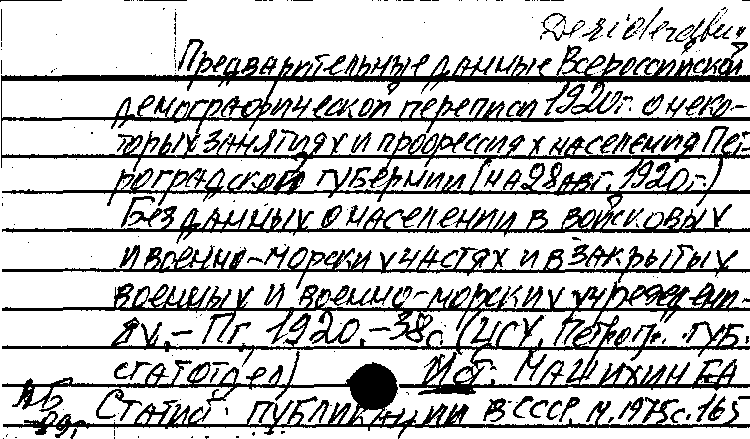 Desiderabur
Предварительные данные Всероссийской
демографической переписи 1920г. о неко-
торых занятиях и профессиях населения Пет-
роградской губернии (на 28 авг. 1920г.)
Без данных о населении в войсковых
и военно-морских частях и в закрытых
военных и военно-морских учрежден-
ях. - Пг, 1920. - 38с. (ЦСУ. Петрогр. губ.
статотдел) Ист: Машихин ЕА
Статист. публикации в СССР. М. 1975 с. 165